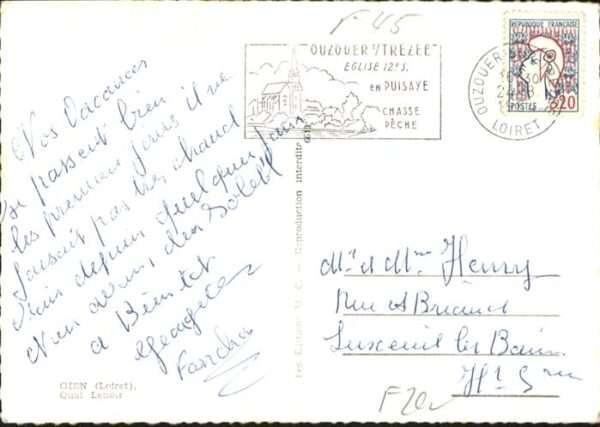 F 45
OUZOUER S/TREZEE
EGLISE 12e S.
EN PUISAYE
CHASSE
PÊCHE
OUZOUER
LOIRET
REPUBLIQUE FRANÇAISE
POSTES
0,20
Nos Vacances
se passent bien
les premiers jours il ne
faisait pas très chaud
mais depuis quelques jours
nous avons du Soleil
a Bientot
Georgette
GIEN (Loiret)
Quai Lenoir
Reproduction interdite
Mr et Mme Henry
Rue A Briand
Luxeuil les Bains
Hte Saone